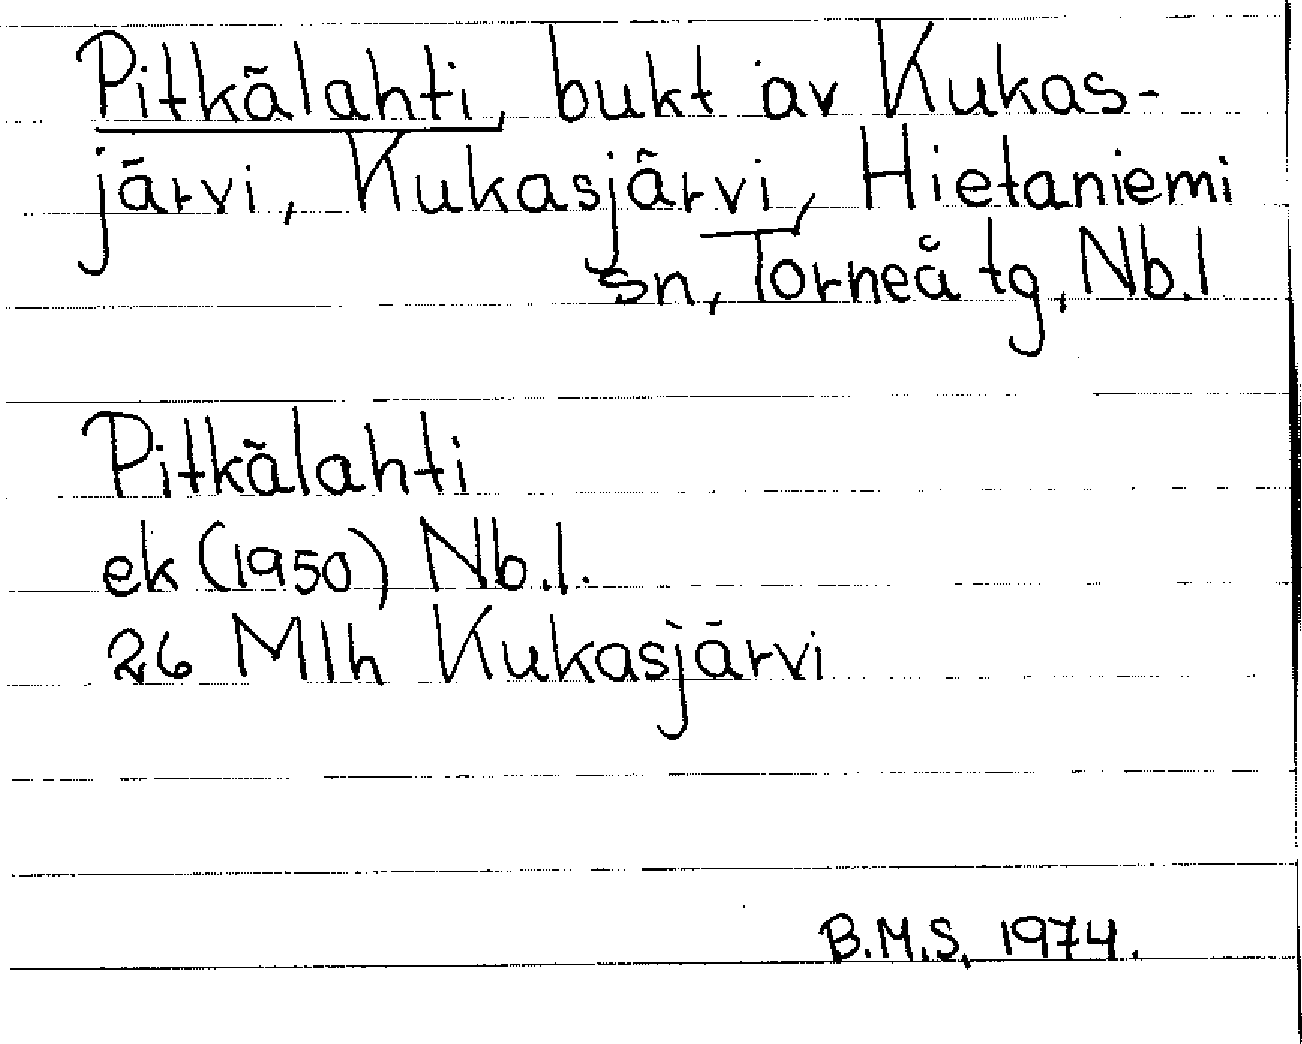 Pitkälahti, bukt av Kukas-
järvi, Kukasjärvi, Hietaniemi
sn, Torneå tg, Nb.l
Pitkälahti
ek (1950) Nb.l.
26 Mlh Kukasjärvi
B.M.S, 1974.